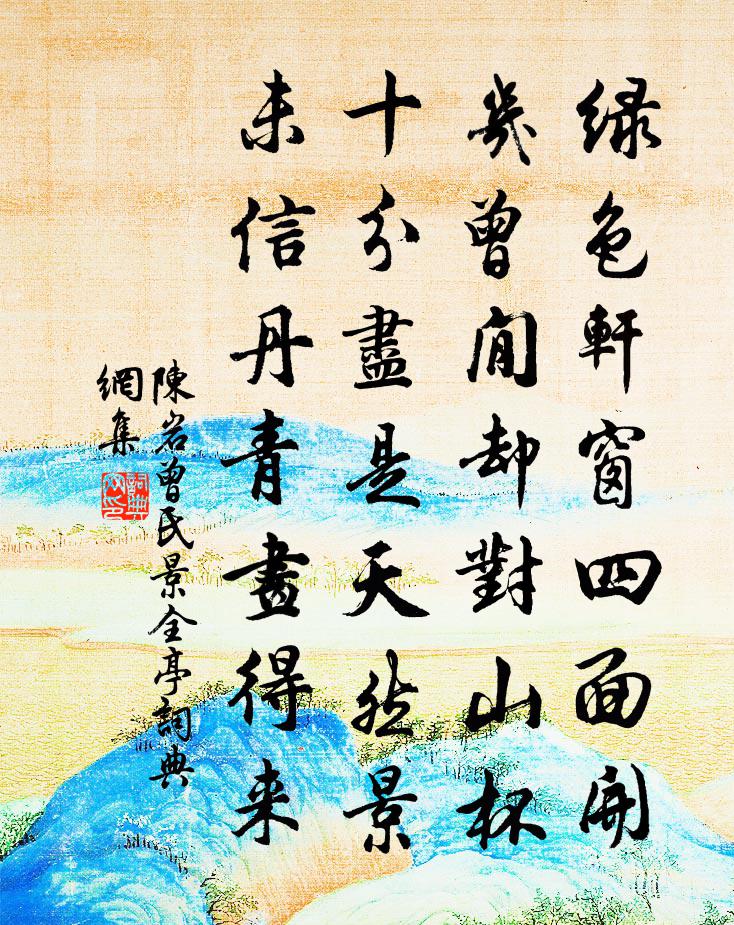 绿色軒窗四面開
幾曾閒却對山杯
十分盡是天然景
未信丹青畫得来
陳岩曾氏景全亭詞典
網集
詞典